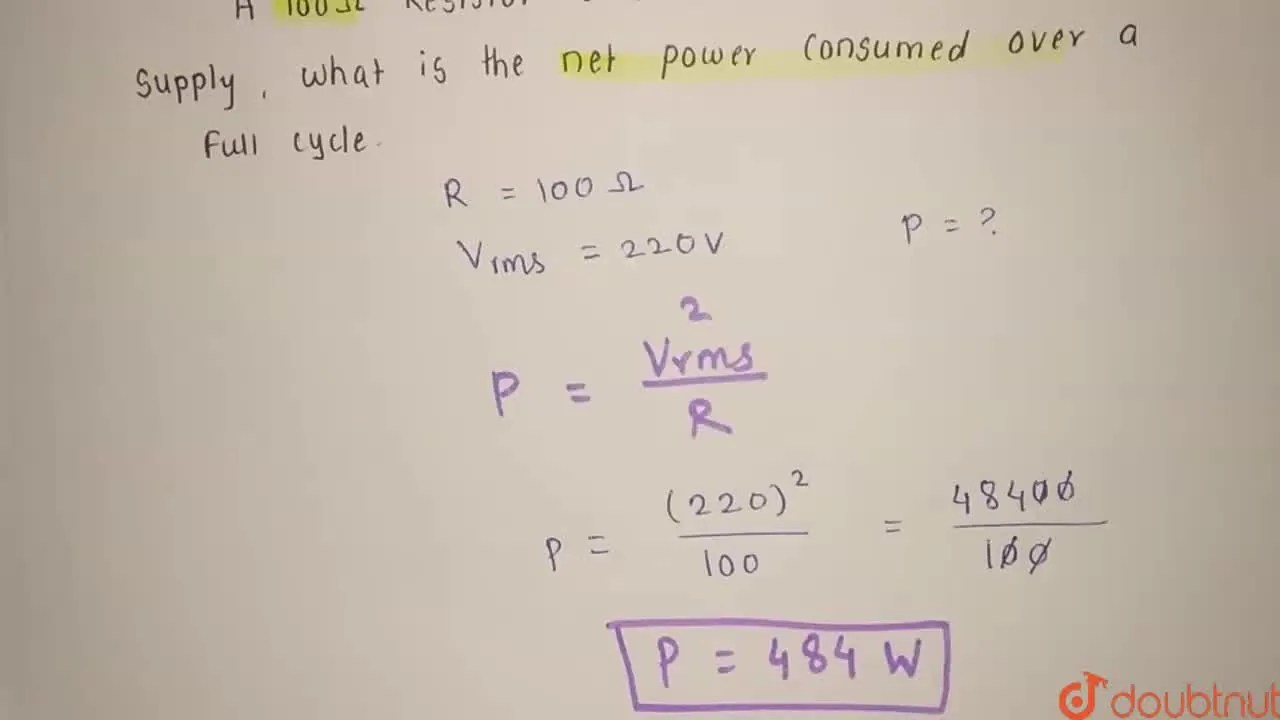 A 100Ω Resistor
supply, what is the net power consumed over a
full cycle.
R = 100 Ω
Vrms = 220V
P = ?
P = V²rms / R
P = (220)² / 100 = 48400 / 100
P = 484 W
doubtnut